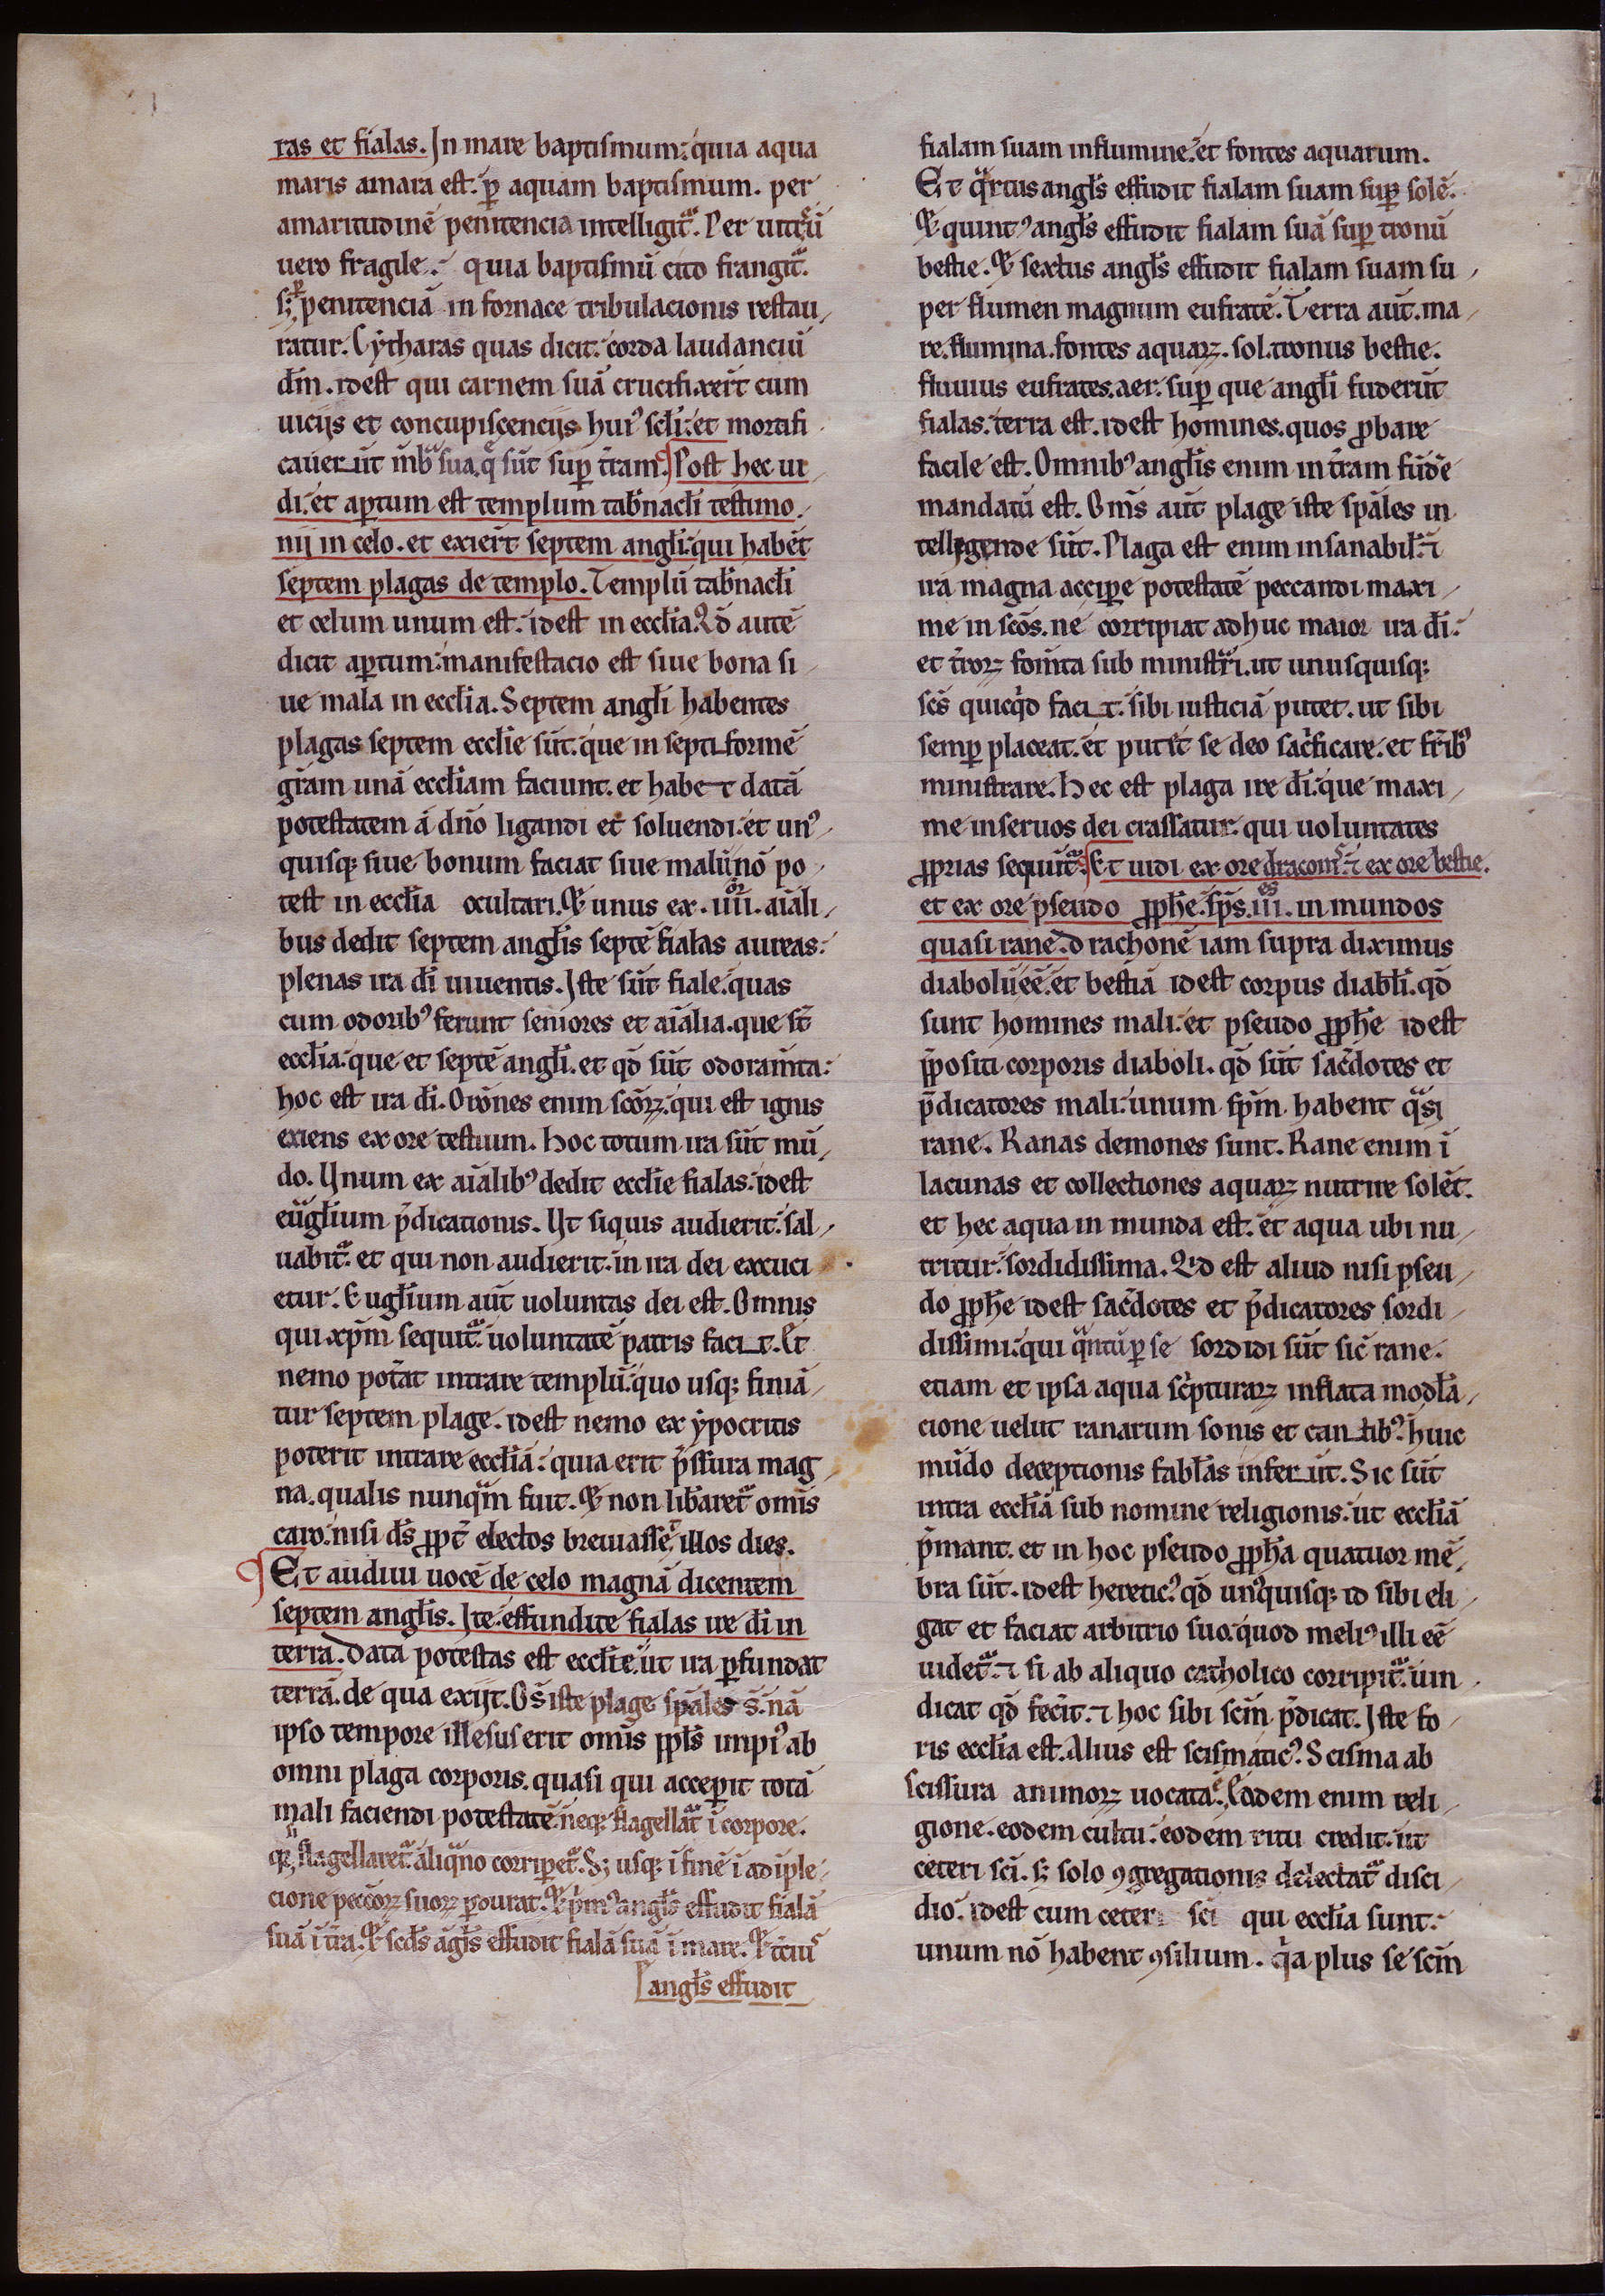 ras et fialas. In mare baptismum: quia aqua
maris amara est. p̱ aquam baptismum. per
amaritudinē penitencia intelligit᷑. Per uitrū
uero fragile. quia baptismū cito frangit᷑.
sꝫ ꝑ penitenciā in fornace tribulacionis restau
ratur. Cẏtharas quas dicit. corda laudanciū
dm̄. idest qui carnem suā crucifixer̄t cum
uicijs et concupiscencijs huiꝰ sc̄li. et mortifi
cauer ūt m̄bͣ sua q̄ sūt suꝑ t̄ram. Post hec ui
di. et aꝑtum est templum tab̄nacl̄i testimo
nij in celo. et exier̄t septem angl̄i. qui habēt
septem plagas de templo. Templū tab̄nacl̄i
et celum unum est. idest in eccl̄ia. Qd̄ autē
dicit aꝑtum: manifestacio est siue bona si
ue mala in eccl̄ia. Septem angl̄i habentes
plagas septem eccl̄ie sūt. que in septi formē
gr̄am unā eccl̄iam faciunt. et habe t datā
potestatem á dn̄o ligandi et soluendi. et unꝰ
quisqꝫ siue bonum faciat siue malū nō po
test in eccl̄ia ocultari. Et unus ex .iiii. aīali
bus dedit septem angl̄is septē fialas aureas:
plenas ira dī uiuentis. Iste sūt fiale. quas
cum odoribꝰ ferunt seniores et aīalia. que st̄
eccl̄ia. que et septē angl̄i. et qd̄ sūt odoram̄ta:
hoc est ira dī. Or̄ones enim sc̄oꝝ. qui est ignis
exiens ex ore testium. Hoc totum ira sūt mū
do. Unum ex aīalibꝰ dedit eccl̄ie fialas. idest
eūgl̄ium p̄dicationis. Ut siquis audierit. sal
uabit᷑. et qui non audierit. in ira dei excuci
etur. Eugl̄ium aūt uoluntas dei est. Omnis
qui xp̄m sequit᷑. uoluntatē patris faci t. Et
nemo pot̄at intrare templū. quo usqꝫ finiā
tur septem plage. idest nemo ex ẏpocritis
poterit intrare eccl̄iā. quia erit p̄ssura mag
na. qualis nunqͣm fuit. Et non lib̄aret᷑ om̄is
caro. nisi ds̄ ꝓpt̄ electos breuiasset illos dies.
Et audiui uocē de celo magnā dicentem
septem angl̄is. Ite. effundite fialas ire dī in
terrā. Data potestas est eccl̄ie. ut ira ꝑfundat
terrā. de qua exijt. Os̄ iste plage sp̄ales s̄. nā
ipso tempore illesus erit om̄is ppl̄s impiꝰ ab
omni plaga corporis. quasi qui acceꝑit totā
mali faciendi potestatē. neqꝫ flagellat᷑ ī corpore.
flagellaret᷑. aliqͣno corriꝑet᷑. Sꝫ usqꝫ ī finē ī adīple
cione peccōꝝ suoꝝ ꝑdurat. Et p̄mꝰ angl̄s effudit fialā
suā ī t̄ra. Et scds̄ āgl̄s effudit fialā suā ī mare. Et t̄ciuſ
angl̄s effudit
fialam suam in flumine. et fontes aquarum.
Et qͣrtus angl̄s effudit fialam suam suꝑ solē.
Et quintꝰ angl̄s effudit fialam suā suꝑ tronū
bestie. Et sextus angl̄s effudit fialam suam su
per flumen magnum eufratē. Terra aūt. ma
re. flumina. fontes aquaꝝ. sol. tronus bestie.
fluuius eufrates. aer. suꝑ que angl̄i fuderūt
fialas. terra est. idest homines. quos ꝓbare
facile est. Omnibꝰ angl̄is enim in t̄ram fūdē
mandatū est. Om̄s aūt plage iste sp̄ales in
tellegende sūt. Plaga est enim insanabil̄. ⁊
ira magna acciꝑe potestatē peccandi maxi
me in sc̄os. ne corripiat adhuc maior ira dī:
et t̄roꝝ fom̄ta sub ministr̄i. ut unusquisqꝫ
sc̄s quicqͥd faci t. sibi iusticiā putet. ut sibi
semꝑ placeat. et putet se deo sac̄ficare. et fr̄ibꝰ
ministrare. Hec est plaga ire dī. que maxi
me in seruos dei crassatur. qui uoluntates
ꝓprias sequūt᷑. Et uidi ex ore draconis. ⁊ ex ore bestie.
et ex ore pseudo ꝓph̄e. sp̄s .iii. in mundos
quasi rane. Drachonē iam supra diximus
diabolū eē. et bestiā idest corpus diabl̄i. qd̄
sunt homines mali. et pseudo ꝓph̄e idest
p̄positi corporis diaboli. qd̄ sūt sac̄dotes et
p̄dicatores mali. unum sp̄m habent qͣsi
rane. Ranas demones sunt. Rane enim ī
lacunas et collectiones aquaꝝ nutrire solēt.
et hec aqua in munda est. et aqua ubi nu
tritur. sordidissima. Qd̄ est aliud nisi pseu
do ꝓph̄e idest sac̄dotes et p̄dicatores sordi
dissimi. qui qͣntū ꝑ se sordidi sūt sic̄ rane.
etiam et ipsa aqua sc̄pturaꝝ inflata modl̄a
cione uelut ranarum sonis et can tibꝰ. huic
mūdo deceptionis fabl̄as infer ūt. Sic sūt
intra eccl̄iā sub nomine religionis. ut eccl̄iā
p̄mant. et in hoc pseudo ꝓph̄a quatuor mē
bra sūt. idest hereticꝰ. qd̄ unꝰquisqꝫ id sibi eli
gat et faciat arbitrio suo. quod meliꝰ illi eē
uidet᷑. ⁊ si ab aliquo catholico corripit᷑. uin
dicat qd̄ fecit. ⁊ hoc sibi sc̄m p̄dicat. Iste fo
ris eccl̄ia est. Alius est scismaticꝰ. Scisma ab
scissura animoꝝ uocata. Eodem enim reli
gione. eodem cultu. eodem ritu credit. ut
ceteri sc̄i. sꝫ solo ꝯgregationis delectat᷑ disci
dio. idest cum ceteri sc̄i qui eccl̄ia sunt.
unum nō habent ꝯsilium. qͥa plus se sc̄m